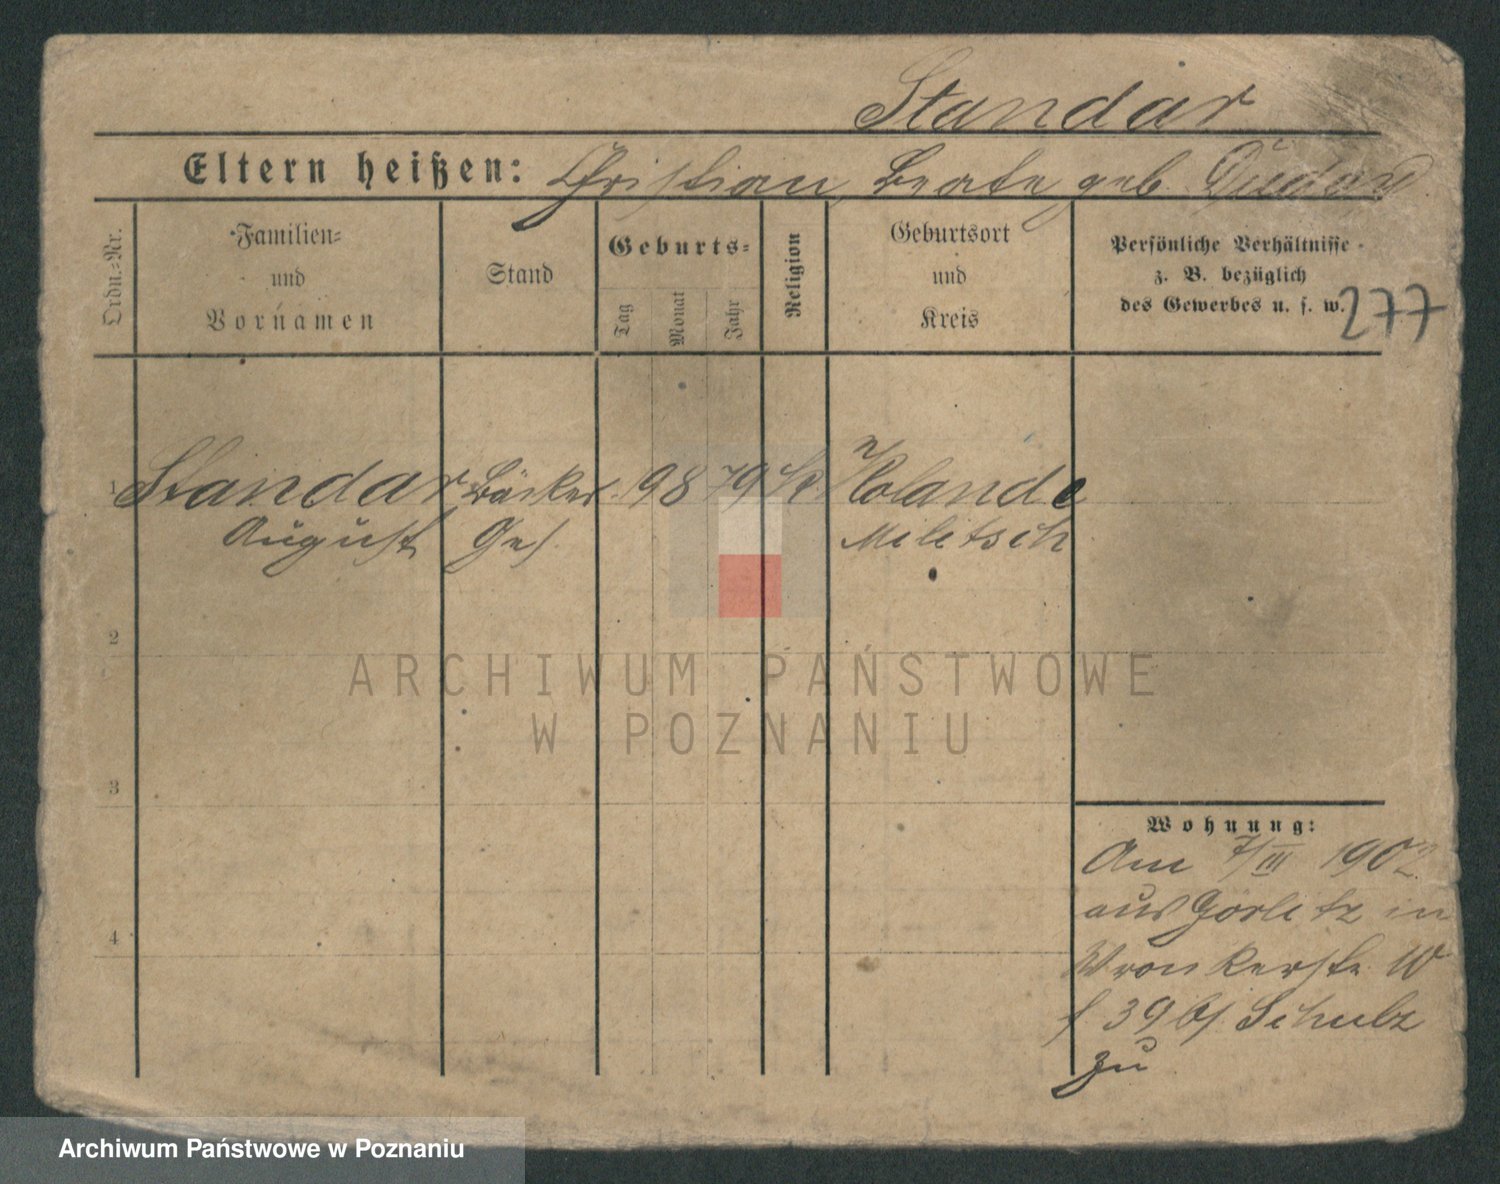 Standar
Eltern heißen: Christian, Beate geb. Duday
Ordn.=Nr.
Familien=
und
Vornamen
Stand
Geburts=
Tag
Monat
Jahr
Religion
Geburtsort
und
Kreis
Persönliche Verhältnisse
z. B. bezüglich
des Gewerbes u. s. w.
277
1 Standar Bäcker 9 8 79
August Ges.
Militsch
2
3
4
Wohnung:
Am 7/III 1902
aus Görlitz in
Wronkerstr. W
39 bs. Schulz
zu
ARCHIWUM PAŃSTWOWE
W POZNANIU
Archiwum Państwowe w Poznaniu